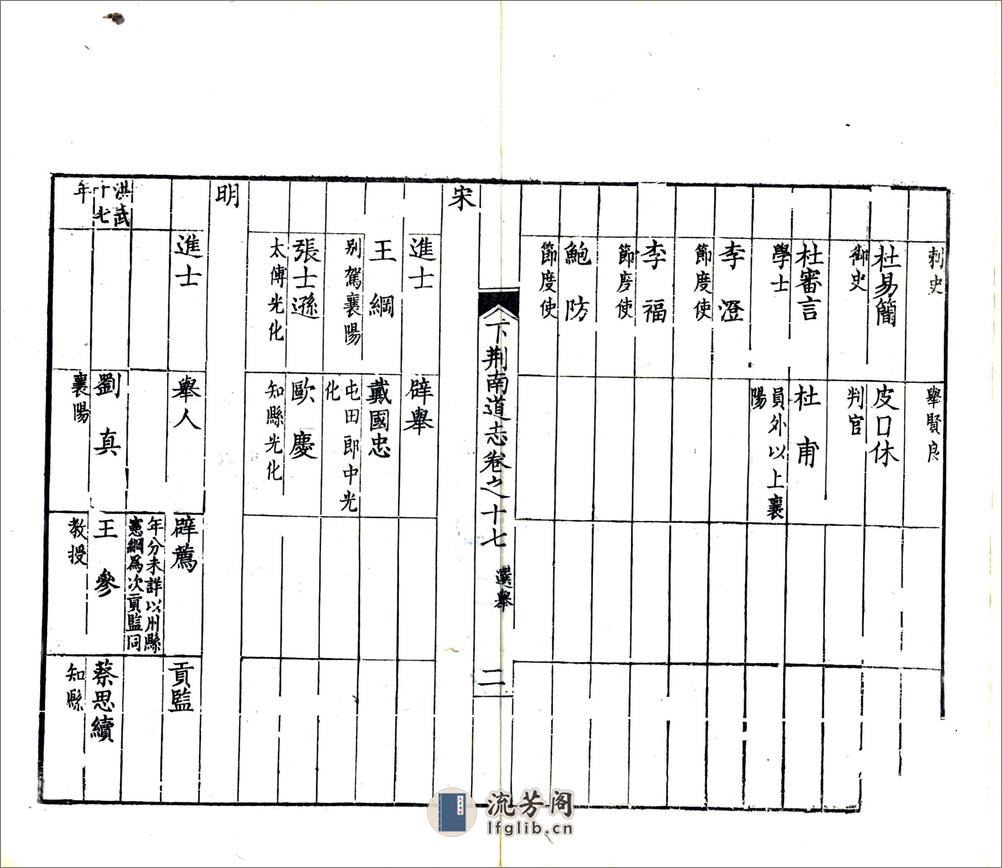 刺史
舉賢良
杜易簡
皮口休
御史
判官
杜審言
杜甫
學士
員外以上襄
陽
李澄
節度使
李福
節度使
鮑防
節度使
下荆南道志卷之十七 選舉 二
宋
進士
辟舉
王綱
戴國忠
别駕襄陽
屯田郎中光
化
張士遜
歐慶
太傅光化
知縣光化
明
進士
舉人
辟薦
貢監
年分未詳以州縣
憲綱為次貢監同
洪武
十七
年
劉真
王參
蔡思續
襄陽
教授
知縣
流芳阁
lfglib.cn